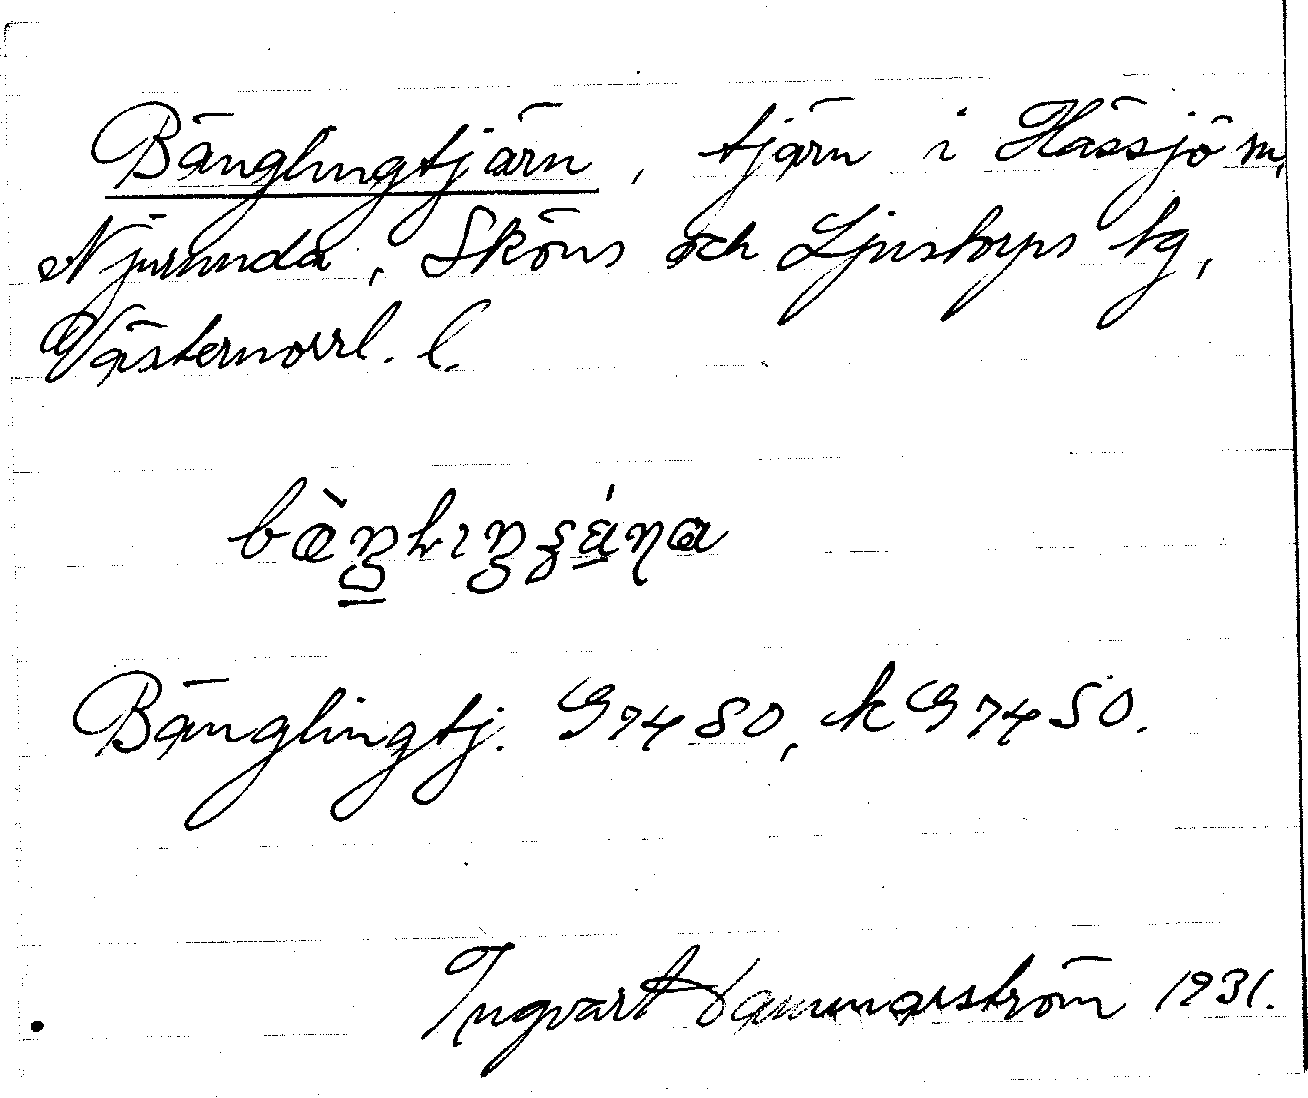 Bänglingtjärn, tjärn i Hässjö m,
Njurunda, Sköns och Ljustorps tg,
Västernorrl. l.
Bänglingtj. G74SO, kG74SO.
Ingvart Hammarström 1931.